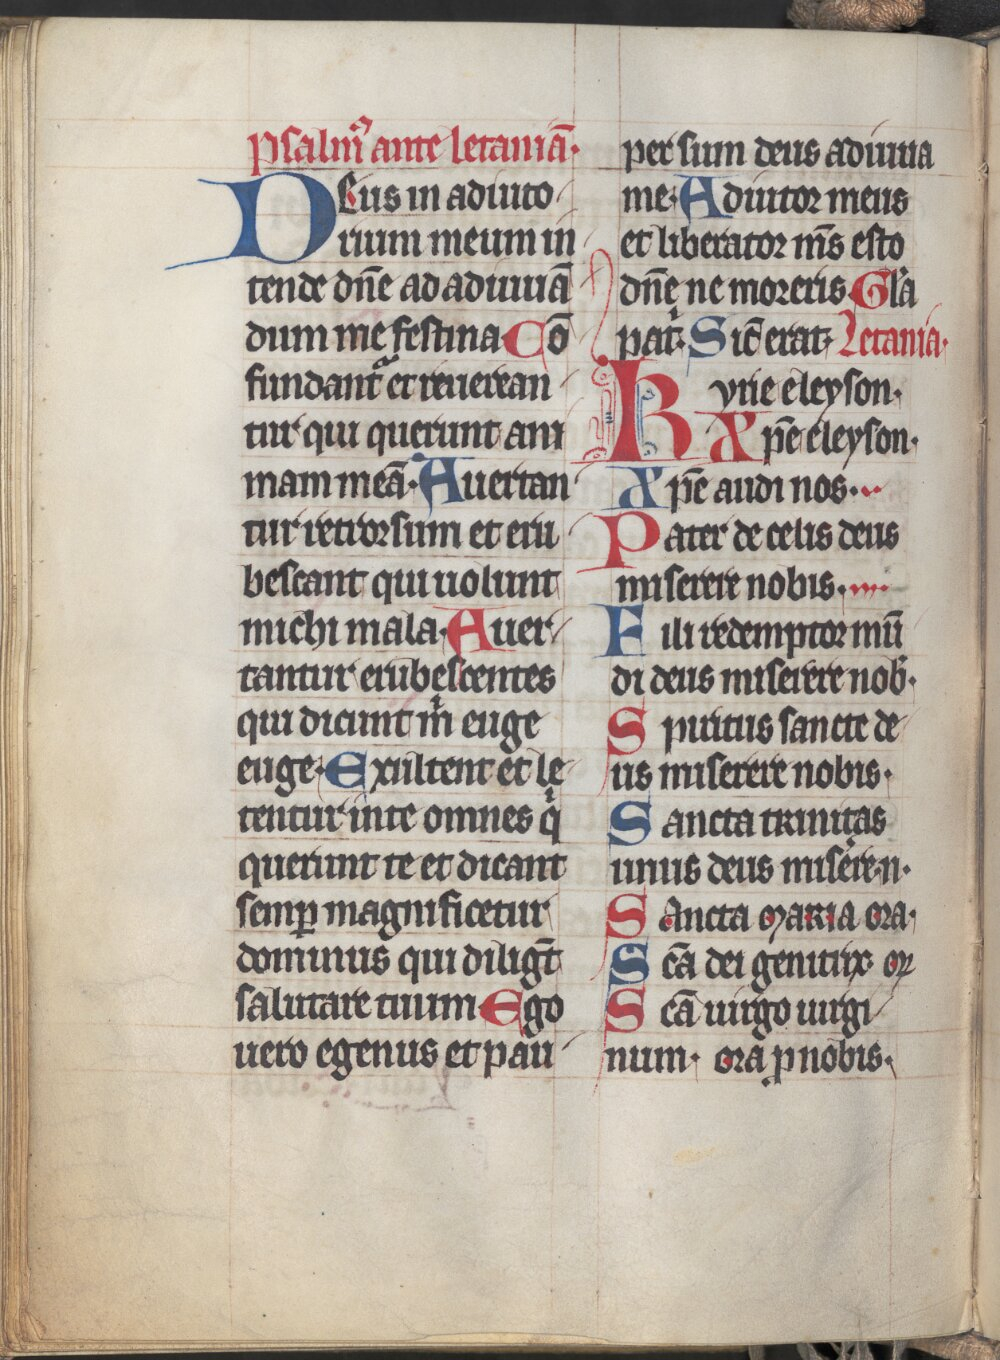 Psalm⁹ ante letaniā·
DEus in adiuto
rium meum in
tende dn̄e ad adiuuā
dum me festina· Cō
fundant᷑ et reuerean
tur qui querunt ani
mam meā· Auertan
tur retrorsum et eru
bescant qui uolunt
michi mala· Auer
tantur erubescentes
qui dicunt m̄ euge
euge· Exultent et le
tentur in te omnes q̄
querunt te et dicant
semꝑ magnificetur
dominus qui diligt̄
salutare tuum Ego
uero egenus et pau
per sum deus adiuua
me· Adiutor meus
et liberator ms̄ esto
dn̄e ne moreris Gla
pat᷑· Sic̄ erat· Letania·
Kyrie eleyson·
Xpē eleyson·
Xpē audi nos·
Pater de celis deus
miserere nobis·
Fili redemptor mū
di deus miserere nob̄·
Spiritus sancte de
us miserere nobis·
Sancta trinitas
unus deus misere·n·
Sancta maria ora·
Scā dei genitrix· oꝝ
Scā uirgo uirgi
num· ora ꝓ nobis·